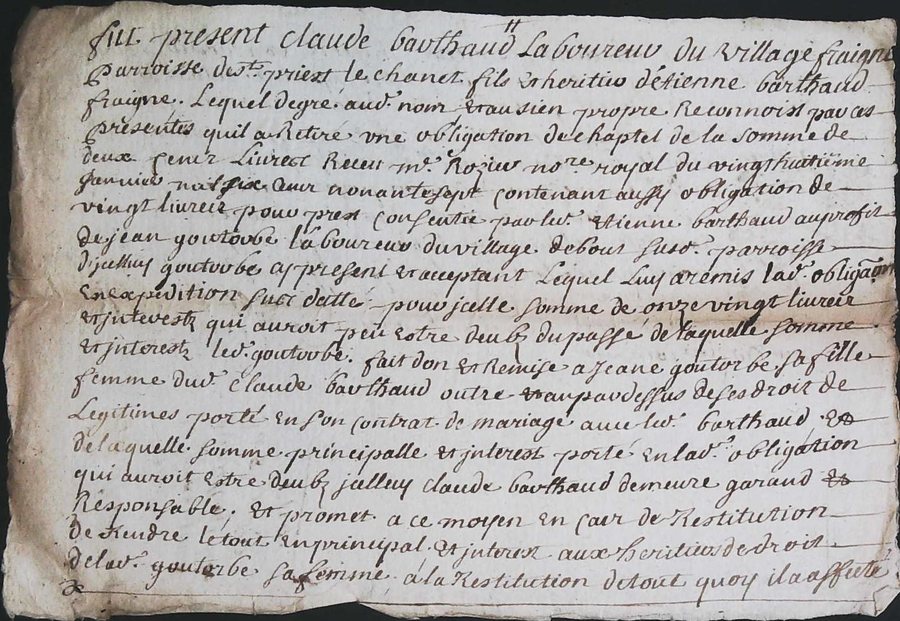 fut present claude barthaud laboureur du village fraigne
parroisse de st. priest le chanet fils et heritier d'étienne barthaud
fraigne. Lequel degré aud. nom et au sien propre Reconnoist par ces
presentes quil a Retiré une obligation de chaptel de la somme de
deux cent Livres Receu me. Rozier nore. royal du vingt huitième
janvier mil six cent nonante sept contenant aussy obligation de
vingt livres pour prest consentie par led. Etienne barthaud au profit
de jean goutorbe laboureur du village debout susd. parroisse
d'jcelluy goutorbe a present et acceptant Lequel Luy a remis lad. obligaon
en expedition sus dattée pour jcelle somme de onze vingt livres
et jnterestz qui auroit peu estre deubz du passé de laquelle somme
et jnterestz led. goutorbe. fait don et Remise a Jeane goutorbe sa fille
femme dud. Claude barthaud outre et au par dessus de ses droit de
Legitimes porté en son contrat de mariage avec led. barthaud, et
de laquelle somme principalle et jnterest porté en lad. obligation
qui auroit estre deubz jcelluy claude barthaud demeure garand et
Responsable, et promet a ce moyen en cas de Restitution
de Rendre le tout en principal et jnterest aux heritiers de droit
de lad. goutorbe sa femme a la Restitution de tout quoy il a affecté